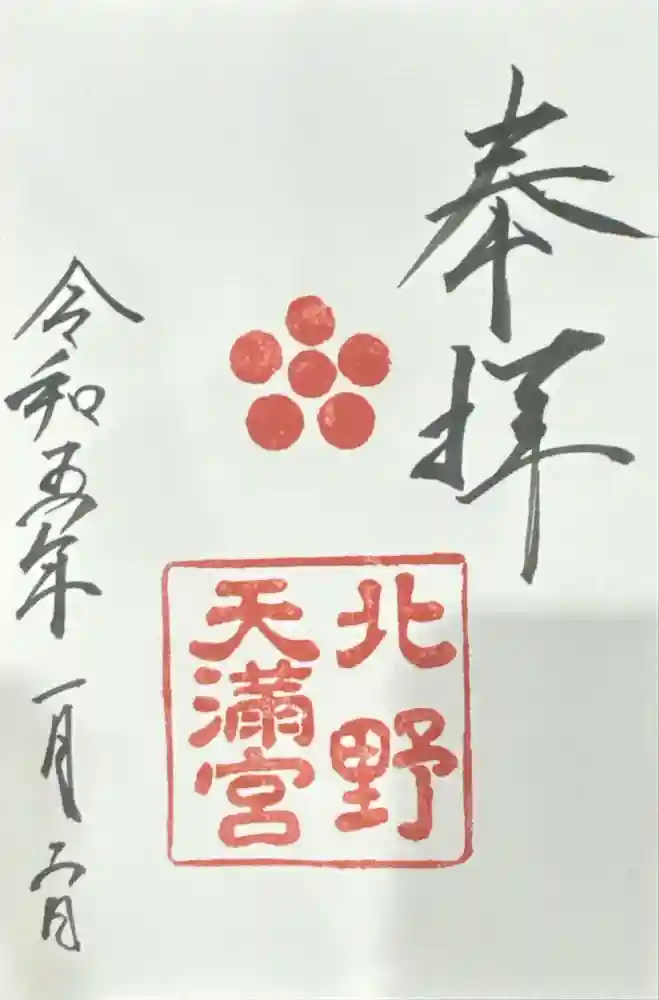 奉拝
北野
天満宮
令和五年一月